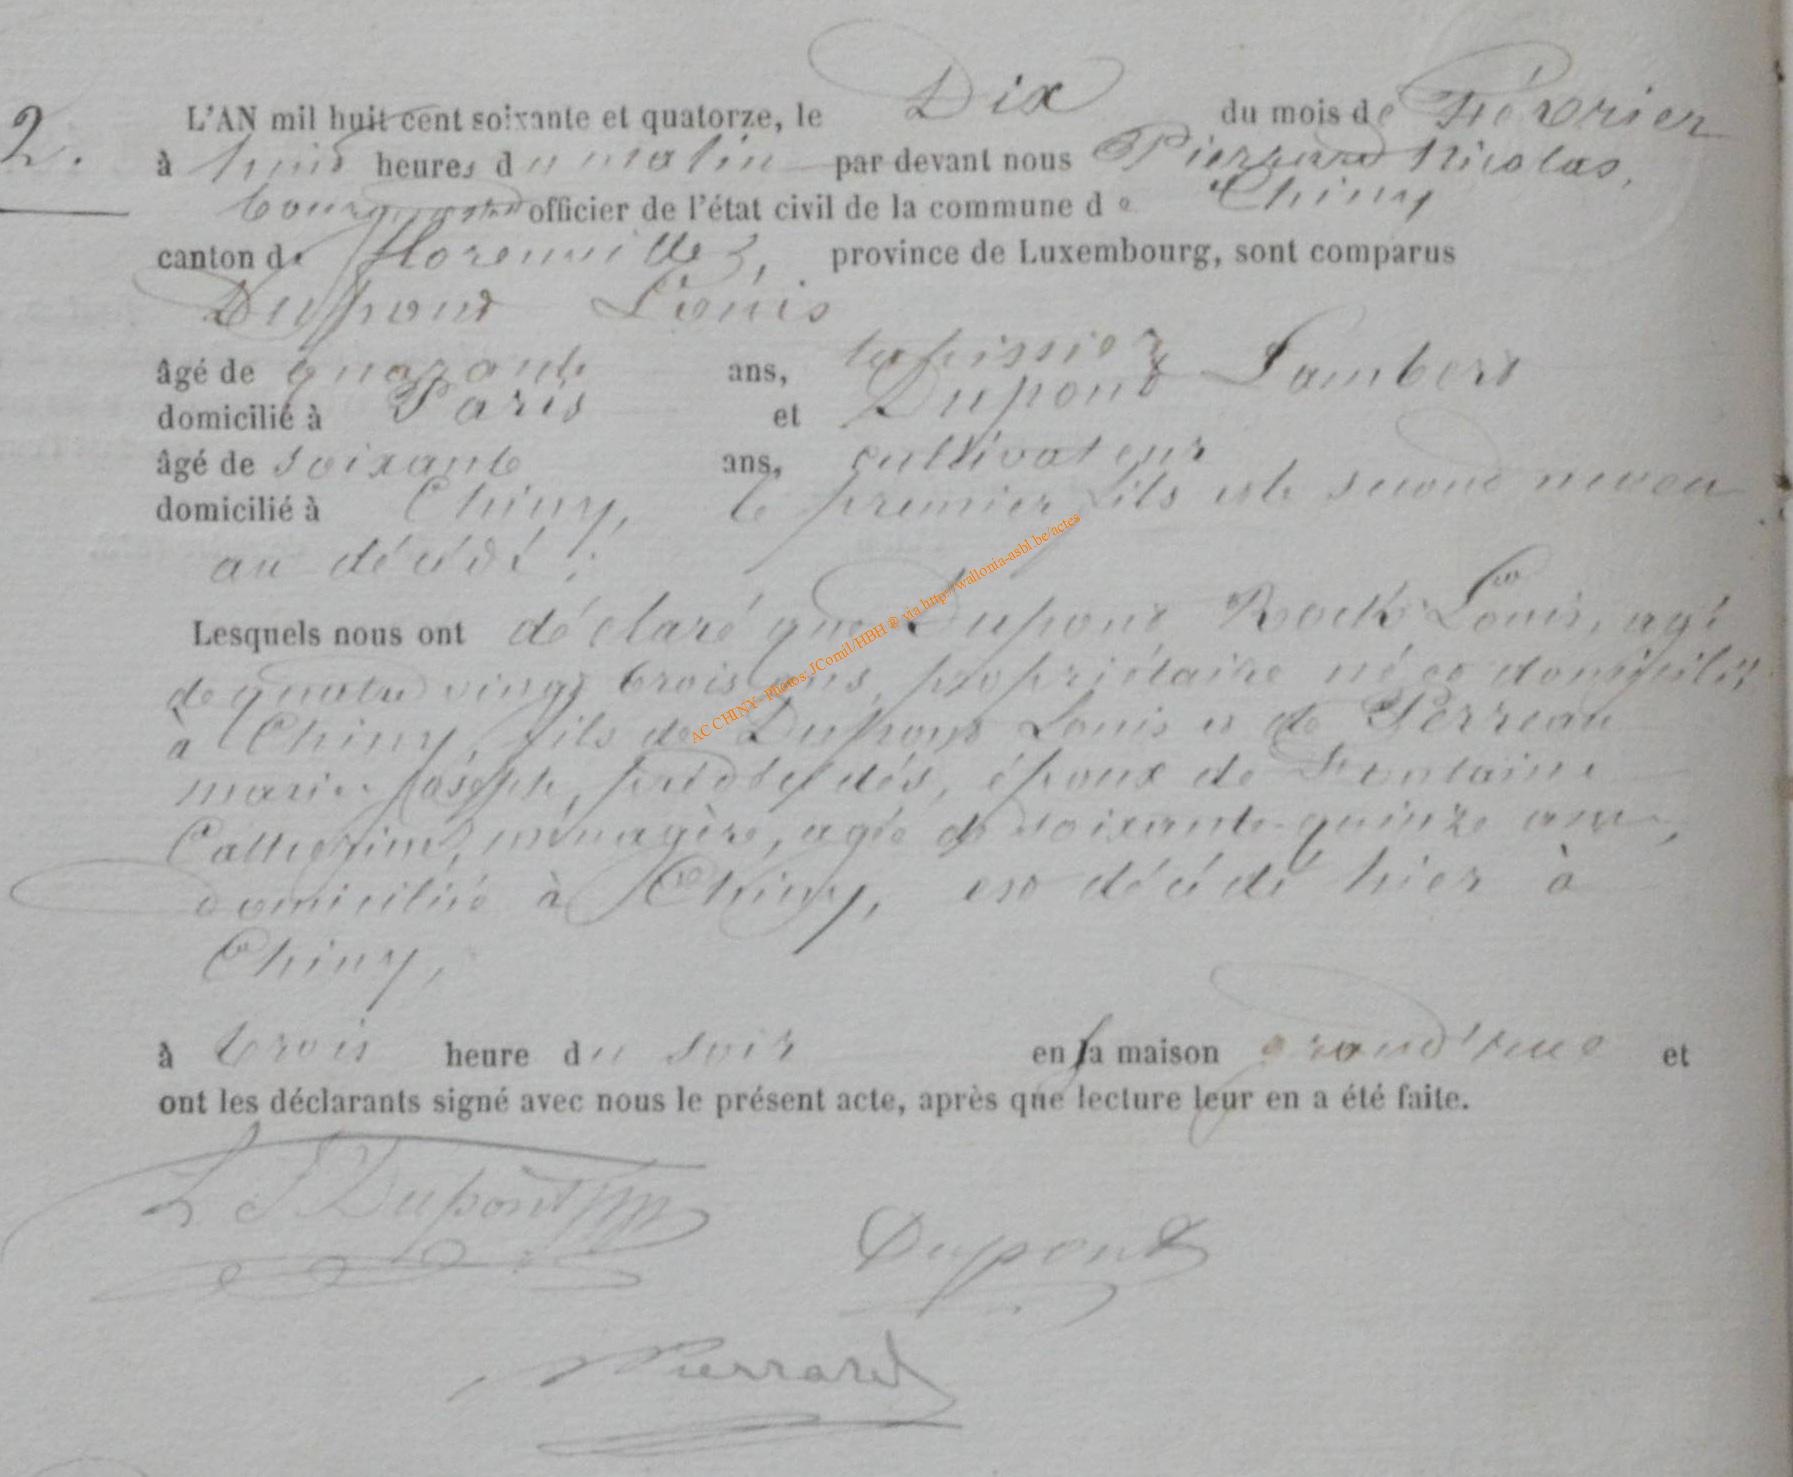 2.
L'AN mil huit cent soixante et quatorze, le Dix du mois de Février
à huit heures du matin par devant nous Pierrard Nicolas,
bourgmestre officier de l'état civil de la commune de Chiny
canton de Florenville, province de Luxembourg, sont comparus
Dupont Louis
âgé de quarante ans, tapissier
domicilié à Paris et Dupont Lambert
âgé de soixante ans, cultivateur
domicilié à Chiny, le premier fils et le second neveu
au décédé;
Lesquels nous ont déclaré que Dupont Roch Louis, agé
de quatre vingt trois ans, propriétaire né et domicilié
à Chiny, fils de Dupont Louis et de Perreau
marie joseph, prédécédés, époux de Fontaine
Catherine, ménagère, agée de soixante-quinze ans,
domiciliée à Chiny, est décédé hier à
Chiny,
à trois heure du soir en sa maison grand'rue et
ont les déclarants signé avec nous le présent acte, après que lecture leur en a été faite.
L Dupont Dupont
Pierrard
AC CHINY - Photos: JComil/HBH @ via http://wallonia-asbl.be/actes